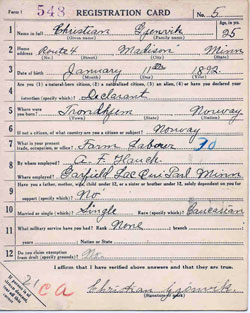 Form 1 548 REGISTRATION CARD No. 5
1 Name in full Christian Gjenvik Age, in yrs. 25
(Given name) (Family name)
2 Home address Route 4 Madison Minn
3 Date of birth January 11th 1892
(Month) (Day) (Year)
4 Are you (1) a natural-born citizen, (2) a naturalized citizen, (3) an alien, (4) or have you declared your
intention (specify which)? Declarant
5 Where were you born? Trondhjem Norway
6 If not a citizen, of what country are you a citizen or subject? Norway
7 What is your present trade, occupation, or office? Farm Labour
8 By whom employed? A. F. Hauck
Where employed? Garfield Lac Qui Parl Minn
9 Have you a father, mother, wife, child under 12, or a sister or brother under 12, solely dependent on you for
support (specify which)? No
10 Married or single (which)? Single Race (specify which)? Caucasian
11 What military service have you had? Rank None branch
years Nation or State
12 Do you claim exemption from draft (specify grounds)? No
I affirm that I have verified above answers and that they are true.
21 CA
Christian Gjenvik